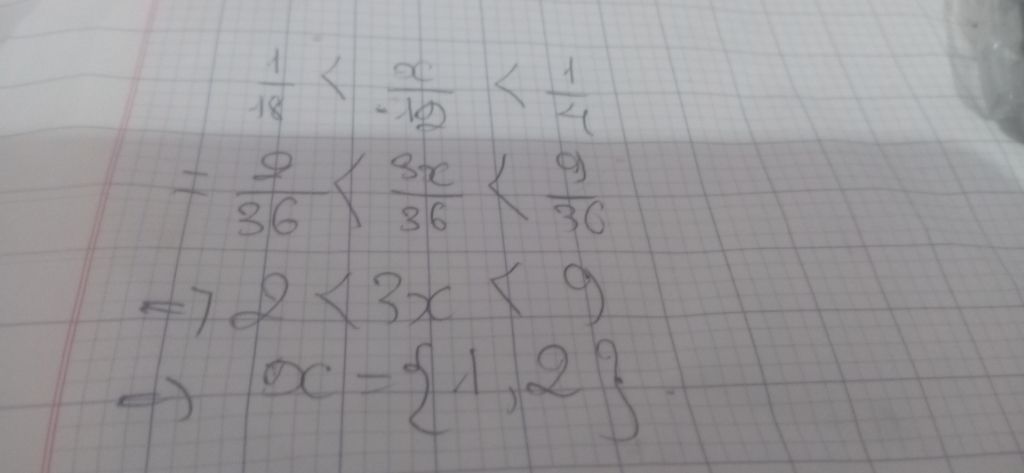 1/18 < x/12 < 1/4
= 2/36 < 3x/36 < 9/36
=> 2 < 3x < 9
=> x = {1, 2}.